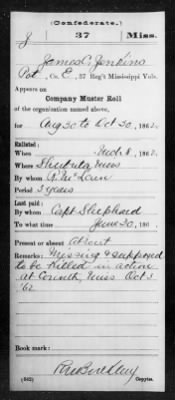 (Confederate.)
J 37 Miss.
James C. Jenkins
Pvt, Co. E, 37 Reg't Mississippi Vols.
Appears on
Company Muster Roll
of the organization named above,
for Aug 30 to Oct 30, 1862.
Enlisted:
When Mch 8, 1862.
Where Shubuta Miss
By whom R. McLain
Period 3 years
Last paid:
By whom Capt Shephard
To what time June 30, 186 .
Present or absent Absent
Remarks: Missing & supposed
to be killed in action
at Corinth, Miss Oct 3
'62
Book mark:
(642) Copyist.